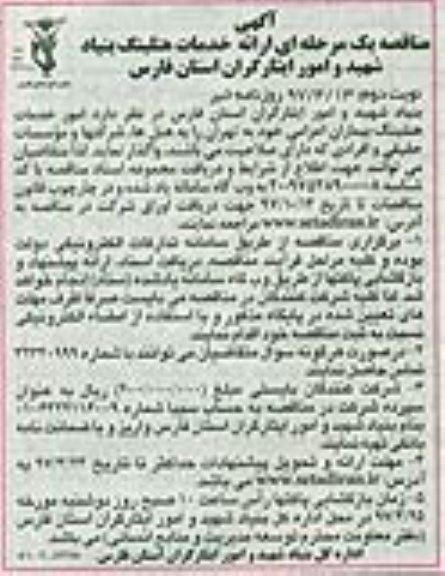 آگهی
مناقصه یک مرحله ای ارائه خدمات هتلینگ بنیاد
شهید و امور ایثارگران استان فارس
نوبت دوم: روزنامه خبر
بنیاد شهید و امور ایثارگران استان فارس در نظر دارد امور خدمات
هتلینگ بیماران اعزامی خود به تهران را به هتل ها، شرکتها و مؤسسات
حقیقی و افرادی که دارای صلاحیت می باشند، واگذار نماید. لذا متقاضیان
می توانند جهت اطلاع از شرایط و دریافت مجموعه اسناد مناقصه با کد
شناسه به وب گاه سامانه یاد شده و در چارچوب قانون
مناقصات تا تاریخ جهت دریافت اوراق شرکت در مناقصه به
آدرس: www.setadiran.ir مراجعه نمایند.
۱- برگزاری مناقصه از طریق سامانه تدارکات الکترونیکی دولت
بوده و کلیه مراحل فرآیند مناقصه، دریافت اسناد، ارائه پیشنهاد و
بازگشایی پاکتها از طریق وب گاه سامانه یادشده (ستاد) انجام خواهد
شد. لذا کلیه شرکت کنندگان در مناقصه می بایست صرفا ظرف مهلت
های تعیین شده در پایگاه مذکور و با استفاده از امضاء الکترونیکی
نسبت به ثبت مناقصه خود اقدام نمایند.
۲- درصورت هرگونه سوال متقاضیان می توانند با شماره
تماس حاصل نمایند.
۳- شرکت کنندگان بایستی مبلغ ریال به عنوان
سپرده شرکت در مناقصه به حساب سیبا شماره
بنام بنیاد شهید و امور ایثارگران استان فارس واریز و یا ضمانت نامه
بانکی تهیه نمایند.
۴- مهلت ارائه و تحویل پیشنهادات حداکثر تا تاریخ به
آدرس: www.setadiran.ir می باشد.
۵- زمان بازگشایی پاکتها رأس ساعت ۱۰ صبح روز دوشنبه مورخه
در محل اداره کل بنیاد شهید و امور ایثارگران استان فارس
(دفتر معاونت محترم توسعه مدیریت و منابع انسانی) می باشد.
اداره کل بنیاد شهید و امور ایثارگران استان فارس